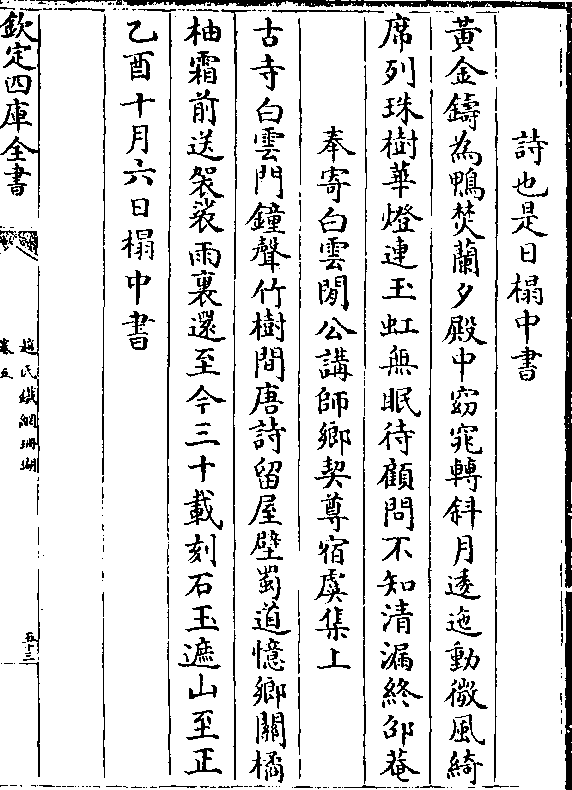 詩也是日榻中書
黃金鑄為鴨焚蘭夕殿中窈窕轉斜月逶迤動微風綺
席列珠樹華燈連玉虹無眠待顧問不知清漏終邵菴
奉寄白雲閒公講師鄉契尊宿虞集上
古寺白雲門鐘聲竹樹間唐詩留屋壁蜀道憶鄉關橘
柚霜前送袈裟雨裏還至今三十載刻石玉遮山至正
乙酉十月六日榻中書
欽定四庫全書
趙氏鐵網珊瑚
卷五
五十三